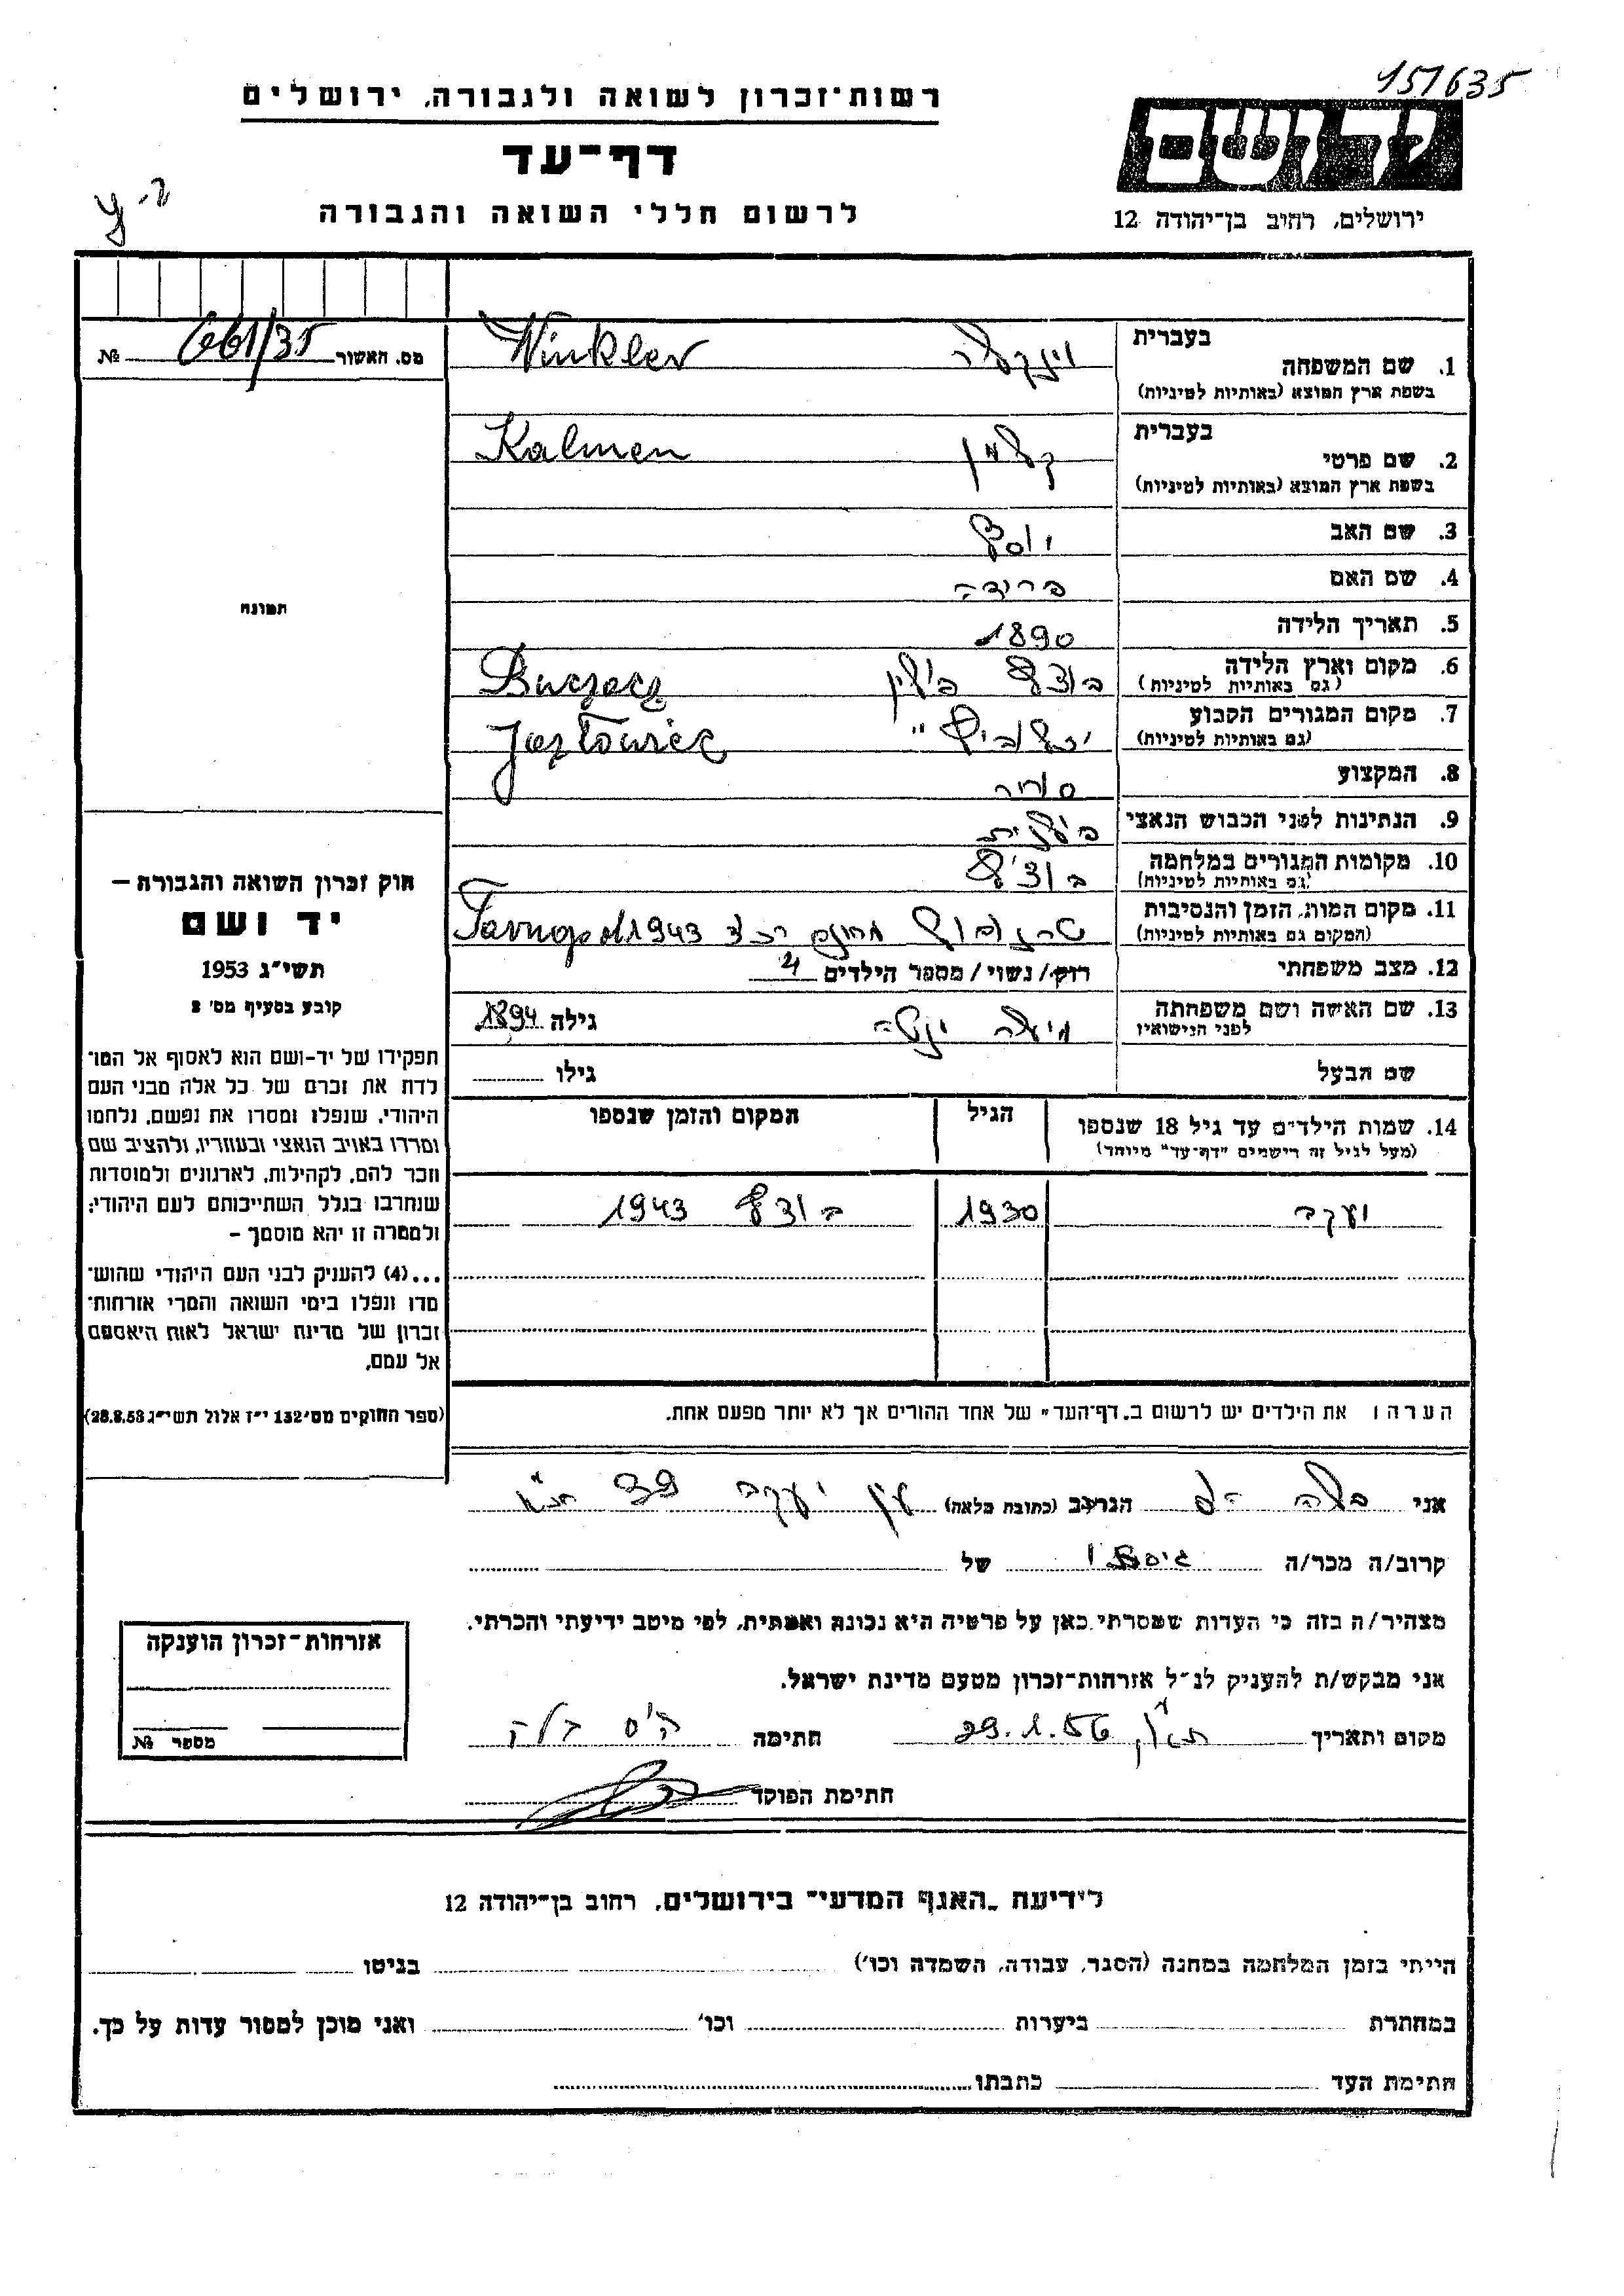 151635
רשות־זכרון לשואה ולגבורה, ירושלים
דף־עד
לרשום חללי השואה והגבורה
יד ושם
ירושלים, רחוב בן־יהודה 12
מס. האשור 661/35 №
בעברית
1. שם המשפחה וינקלר Winkler
בשפת ארץ המוצא (באותיות לטיניות)
בעברית
2. שם פרטי קלמן Kalmen
בשפת ארץ המוצא (באותיות לטיניות)
3. שם האב יוסף
4. שם האם
5. תאריך הלידה 1890
6. מקום וארץ הלידה פולין Buczacz
(גם באותיות לטיניות)
7. מקום המגורים הקבוע Jazłowiec
(גם באותיות לטיניות)
8. המקצוע סוחר
9. הנתינות לפני הכבוש הנאצי פולנית
10. מקומות המגורים במלחמה
(גם באותיות לטיניות)
11. מקום המות, הזמן והנסיבות 1943 Tarnopol
(המקום גם באותיות לטיניות)
12. מצב משפחתי רוק/ נשוי/ מספר הילדים 4
13. שם האשה ושם משפחתה גילה 1894
לפני הנישואין
שם הבעל גילו
14. שמות הילדים עד גיל 18 שנספו הגיל המקום והזמן שנספו
(מעל לגיל זה רישמים "דף־עד" מיוחד)
יעקב 1930 1943
הערה: את הילדים יש לרשום ב„דף־העד" של אחד ההורים אך לא יותר מפעם אחת.
תמונה
חוק זכרון השואה והגבורה —
יד ושם
תשי"ג 1953
קובע בסעיף מס' 2
תפקידו של יד-ושם הוא לאסוף אל המו־
לדת את זכרם של כל אלה מבני העם
היהודי, שנפלו ומסרו את נפשם, נלחמו
ומרדו באויב הנאצי ובעוזריו, ולהציב שם
וזכר להם, לקהילות, לארגונים ולמוסדות
שנחרבו בגלל השתייכותם לעם היהודי;
ולמטרה זו יהא מוסמך —
...(4) להעניק לבני העם היהודי שהוש־
מדו ונפלו בימי השואה והמרי אזרחות־
זכרון של מדינת ישראל לאות היאספם
אל עמם.
(ספר החוקים מס' 132 י"ז אלול תשי"ג 28.8.53)
אני הגר/ב (כתובת מלאה) יעקב
קרוב/ה מכר/ה של
מצהיר/ה בזה כי העדות שמסרתי כאן על פרטיה היא נכונה ואמתית, לפי מיטב ידיעתי והכרתי.
אני מבקש/ת להעניק לנ"ל אזרחות־זכרון מטעם מדינת ישראל.
מקום ותאריך 29.1.56 חתימה
חתימת הפוקד
אזרחות־זכרון הוענקה
מספר №
לידיעת „האגף המדעי" בירושלים, רחוב בן־יהודה 12
הייתי בזמן המלחמה במחנה (הסגר, עבודה, השמדה וכו') בגיטו
במחתרת ביערות וכו' ואני מוכן למסור עדות על כך.
חתימת העד כתבתו